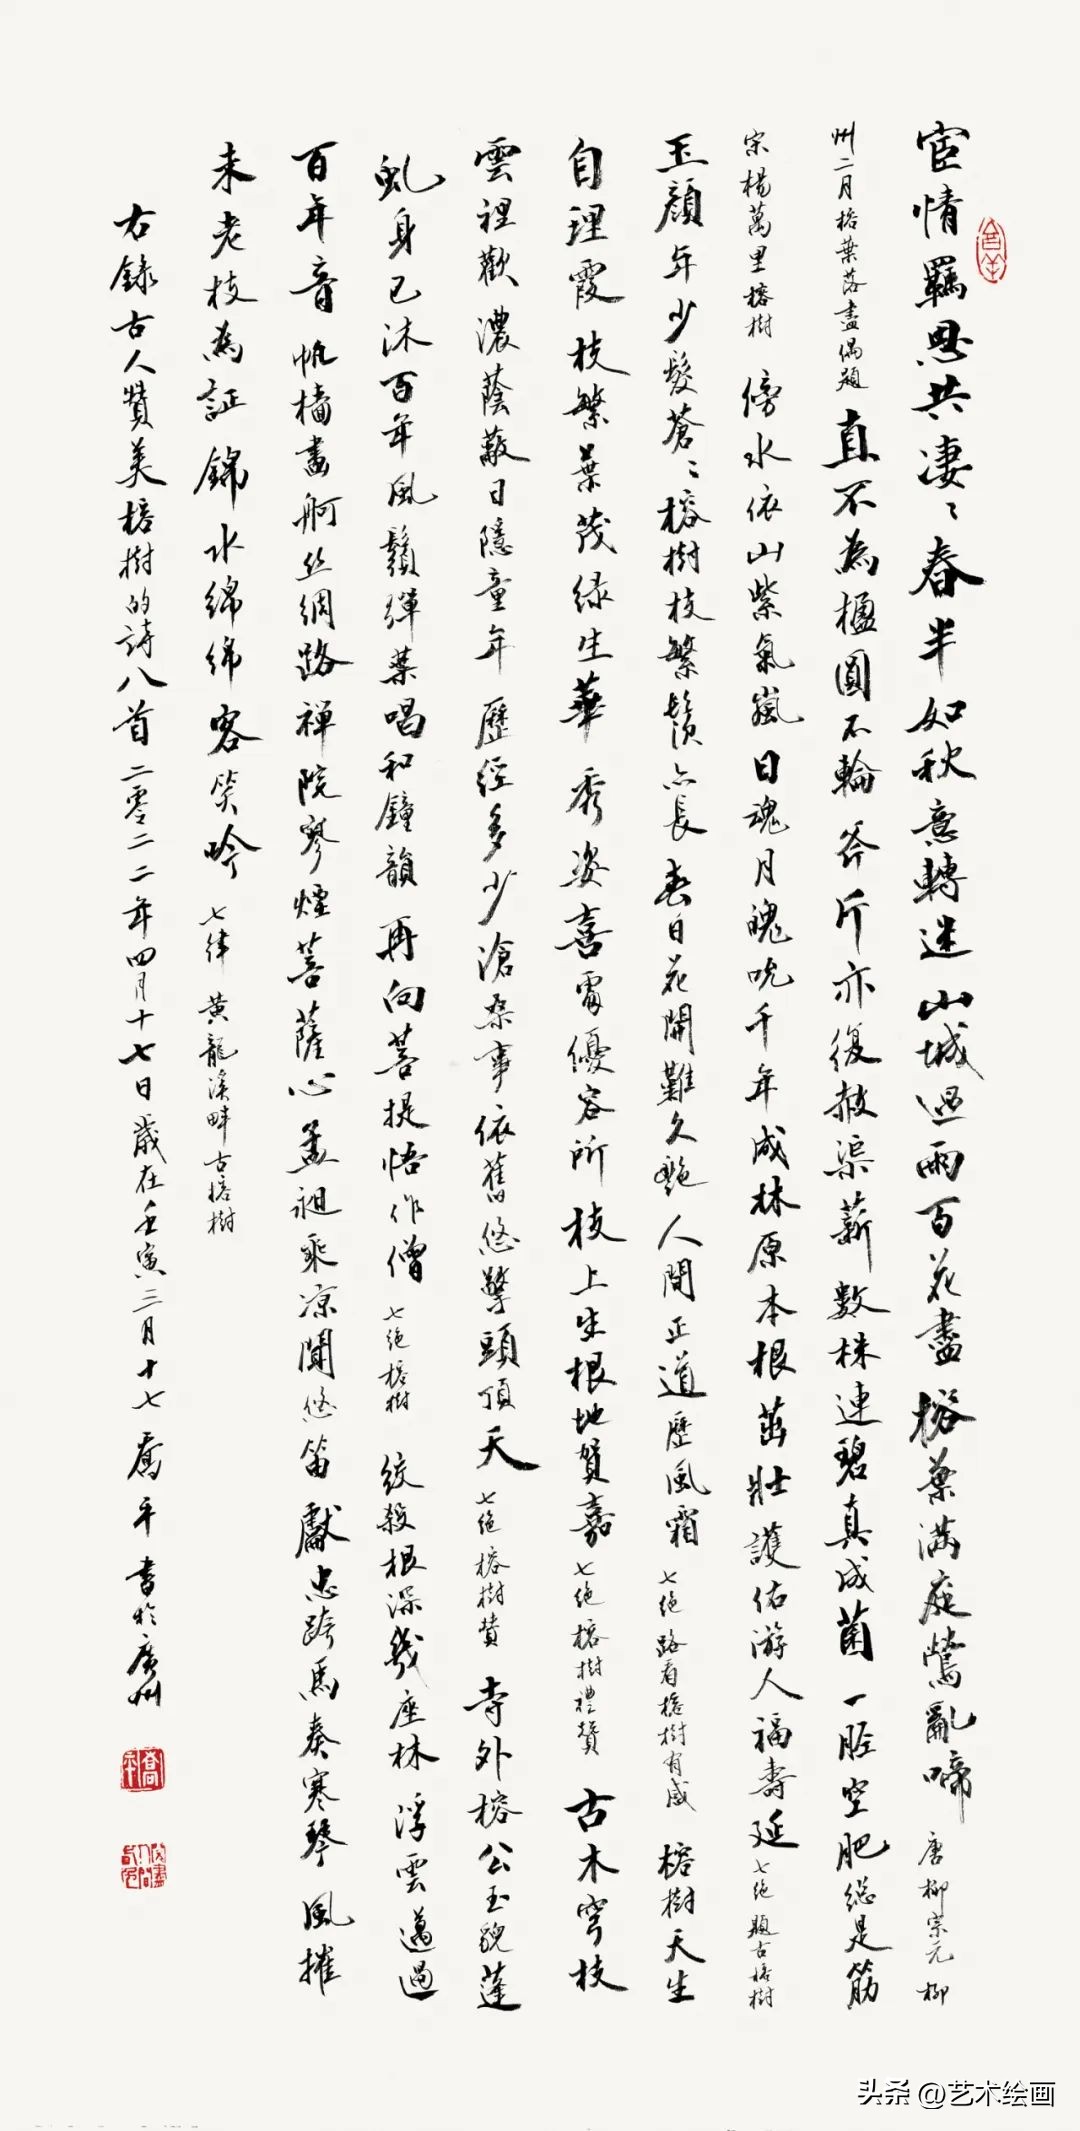 宦情羈思共淒〻春半如秋意轉迷山城過雨百花盡榕葉滿庭鶯亂啼唐柳宗元柳
州二月榕葉落盡偶題直不為楹圓不輪斧斤亦復赦渠薪數株連碧真成菌一脛空肥總是筋
宋楊萬里榕樹傍水依山紫氣嵐日魂月魄吮千年成林原本根茁壯護佑游人福壽延七絕題古榕樹
玉顏年少髮蒼〻榕樹枝繁鬚亦長春日花開難久艷人間正道歷風霜七絕路看榕樹有感榕樹天生
自理霞枝繁葉茂綠生華秀姿喜富優容所枝上生根地賀嘉七絕榕樹禮贊古木穹枝
雲裡歡濃蔭蔽日隱童年歷經多少滄桑事依舊悠擎頭頂天七絕榕樹贊寺外榕公玉貌蓬
虬身已沐百年風鬚彈葉唱和鐘韻再向菩提悟作僧七絕榕樹絞殺根深幾座林浮雲邁過
百年音帆檣畫舸丝綢路禪院寥煙菩薩心孟昶乘凉聞悠笛獻忠跨馬奏寒琴風摧
未老枝為証錦水綿綿客笑吟七律黃龍溪畔古榕樹
右錄古人贊美榕樹的詩八首二零二二年四月十七日歲在壬寅三月十七喬平書於廣州
喬平
头条@艺术绘画